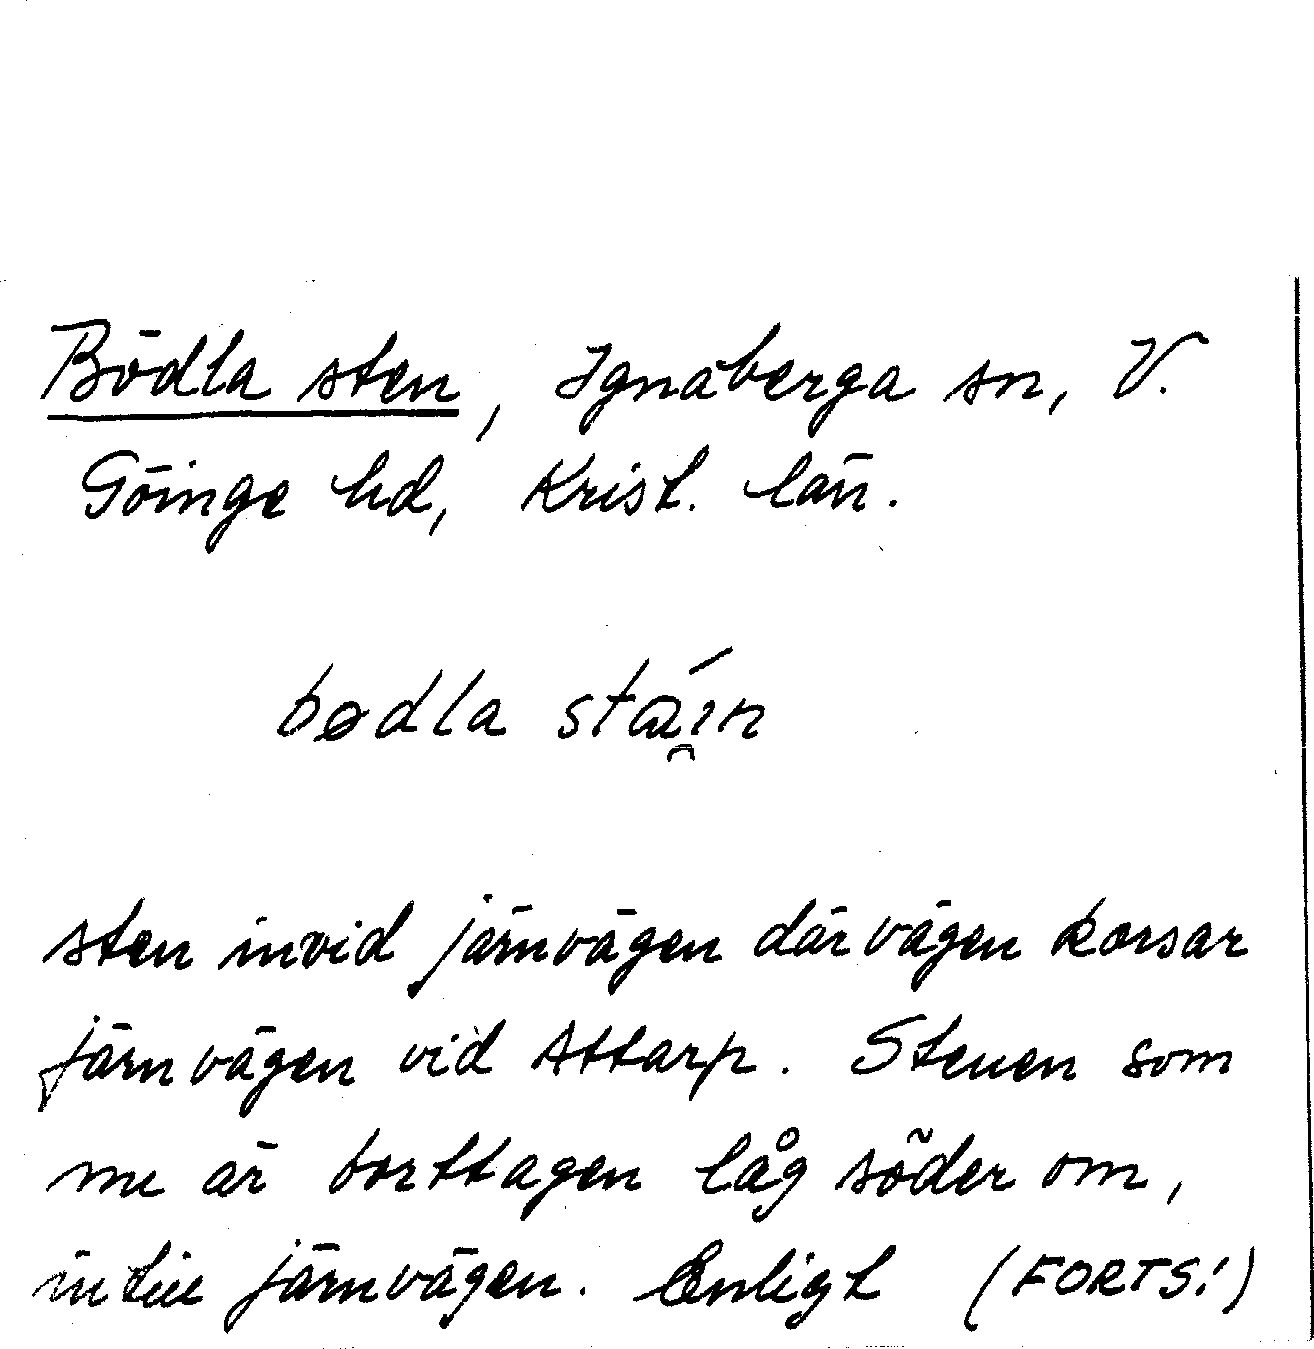 Bödla sten, Ignaberga sn, V.
Göinge hd, Krist. län.
bødla stái̯n
sten invid järnvägen där vägen korsar
järnvägen vid Attarp. Stenen som
nu är borttagen låg söder om,
intill järnvägen. Enligt (FORTS!)